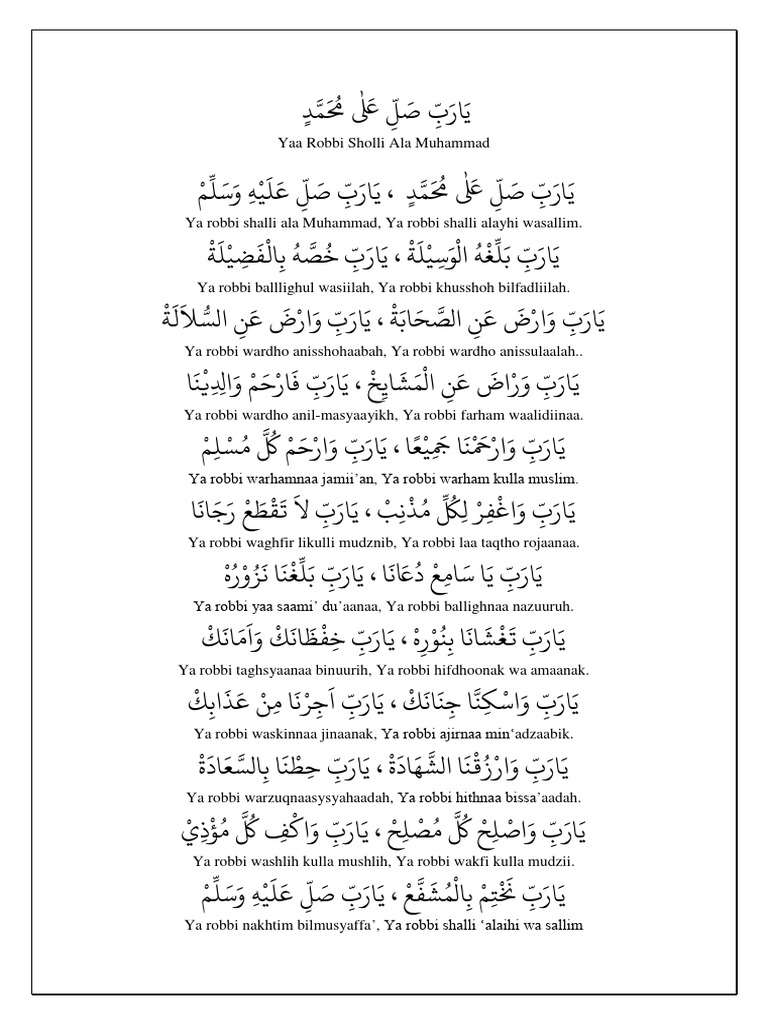 يَارَبِّ صَلِّ عَلٰى مُحَمَّدٍ
Yaa Robbi Sholli Ala Muhammad
يَارَبِّ صَلِّ عَلٰى مُحَمَّدٍ ، يَارَبِّ صَلِّ عَلَيْهِ وَسَلِّمْ
Ya robbi shalli ala Muhammad, Ya robbi shalli alayhi wasallim.
يَارَبِّ بَلِّغْهُ الْوَسِيْلَةْ ، يَارَبِّ خُصَّهُ بِالْفَضِيْلَةْ
Ya robbi balllighul wasiilah, Ya robbi khusshoh bilfadliilah.
يَارَبِّ وَارْضَ عَنِ الصَّحَابَةْ ، يَارَبِّ وَارْضَ عَنِ السُّلاَلَةْ
Ya robbi wardho anisshohaabah, Ya robbi wardho anissulaalah..
يَارَبِّ وَرْاضَ عَنِ الْمَشَايِخْ ، يَارَبِّ فَارْحَمْ وَالِدِيْنَا
Ya robbi wardho anil-masyaayikh, Ya robbi farham waalidiinaa.
يَارَبِّ وَارْحَمْنَا جَمِيْعًا ، يَارَبِّ وَارْحَمْ كُلَّ مُسْلِمْ
Ya robbi warhamnaa jamii’an, Ya robbi warham kulla muslim.
يَارَبِّ وَاغْفِرْ لِكُلِّ مُذْنِبْ ، يَارَبِّ لاَ تَقْطَعْ رَجَانَا
Ya robbi waghfir likulli mudznib, Ya robbi laa taqtho rojaanaa.
يَارَبِّ يَا سَامِعْ دُعَانَا ، يَارَبِّ بَلِّغْنَا نَزُوْرُهْ
Ya robbi yaa saami’ du’aanaa, Ya robbi ballighnaa nazuuruh.
يَارَبِّ تَغْشَانَا بِنُوْرِهْ ، يَارَبِّ حِفْظَانَكْ وَاَمَانَكْ
Ya robbi taghsyaanaa binuurih, Ya robbi hifdhoonak wa amaanak.
يَارَبِّ وَاسْكِنَّا جِنَانَكْ ، يَارَبِّ اَجِرْنَا مِنْ عَذَابِكْ
Ya robbi waskinnaa jinaanak, Ya robbi ajirnaa min‘adzaabik.
يَارَبِّ وَارْزُقْنَا الشَّهَادَةْ ، يَارَبِّ حِطْنَا بِالسَّعَادَةْ
Ya robbi warzuqnaasysyahaadah, Ya robbi hithnaa bissa’aadah.
يَارَبِّ وَاصْلِحْ كُلَّ مُصْلِحْ ، يَارَبِّ وَاكْفِ كُلَّ مُؤْذِيْ
Ya robbi washlih kulla mushlih, Ya robbi wakfi kulla mudzii.
يَارَبِّ نَخْتِمْ بِالْمُشَفَّعْ ، يَارَبِّ صَلِّ عَلَيْهِ وَسَلِّمْ
Ya robbi nakhtim bilmusyaffa’, Ya robbi shalli ‘alaihi wa sallim